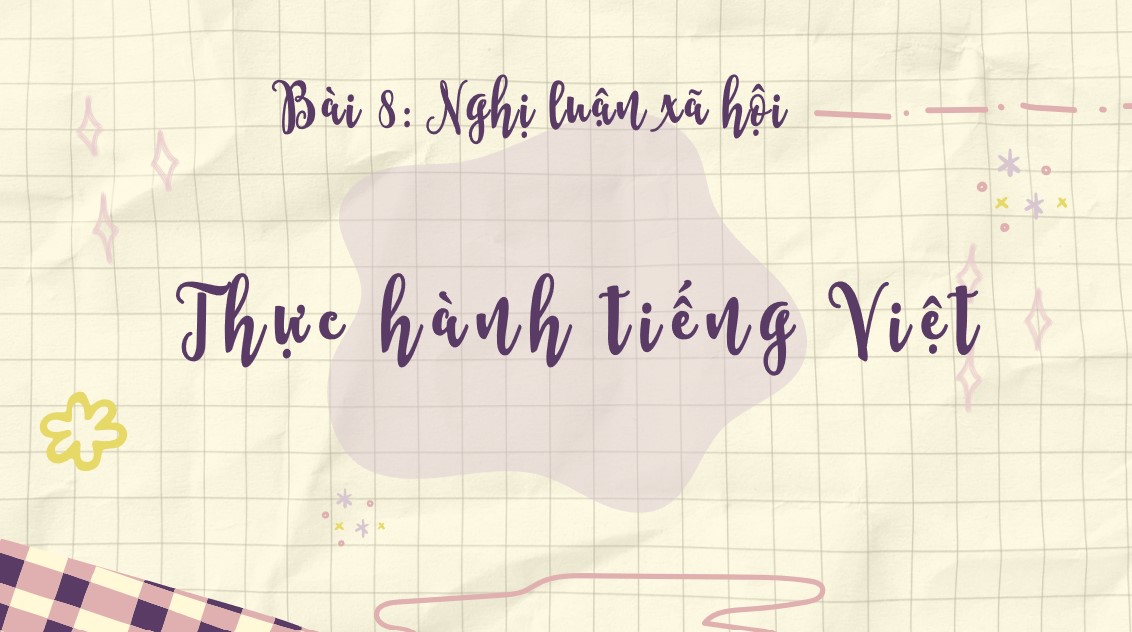 Bài 8: Nghị luận xã hội
Thực hành tiếng Việt